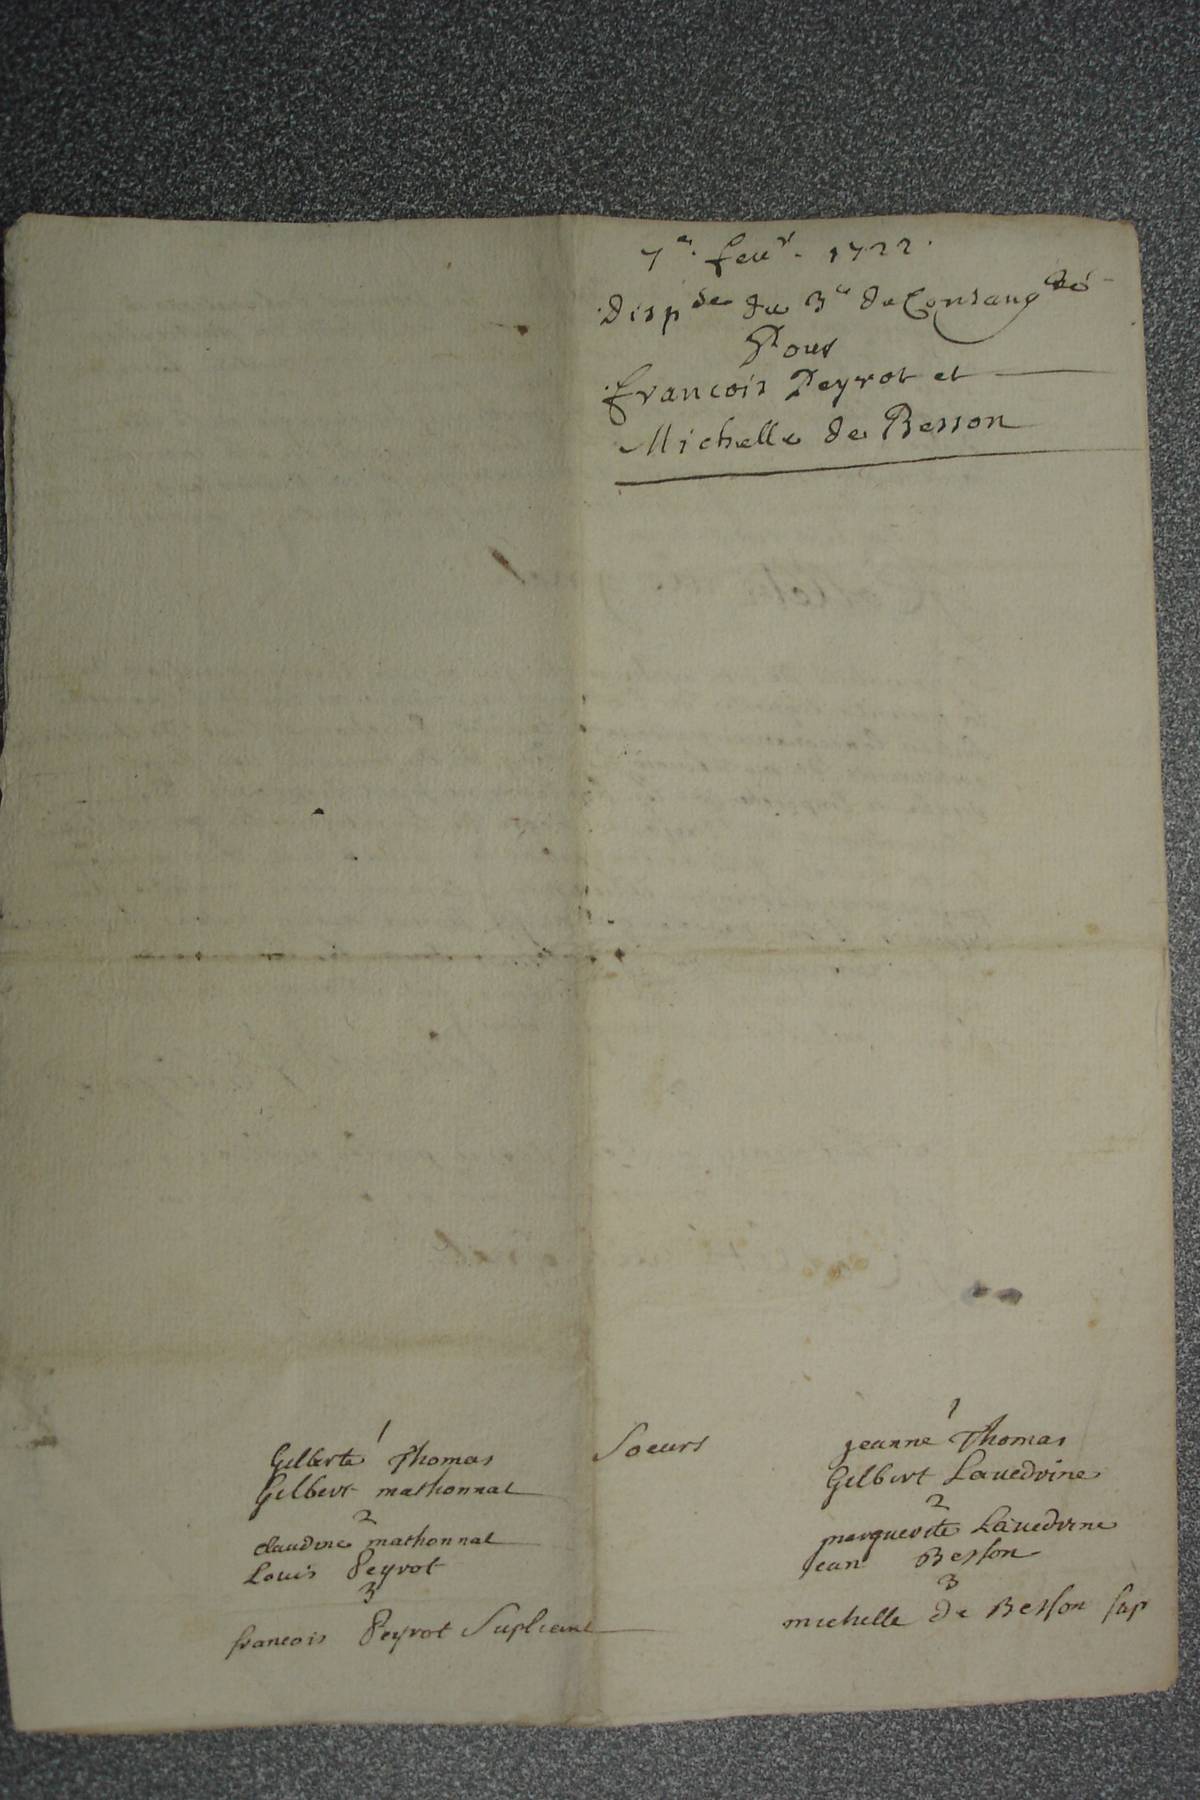 7e. feur. 1722.
Dispse du 3e de Consangté
Pour
francois Peyrot et
Michelle de Besson
1
Gilberte Thomas
Gilbert mathonnat
2
claudine mathonnat
Louis Peyrot
3
francois Peyrot Supliant
Soeurs
1
jeanne Thomas
Gilbert Lauedrine
2
marguerite Lauedrine
jean Besson
3
michelle de Besson sup